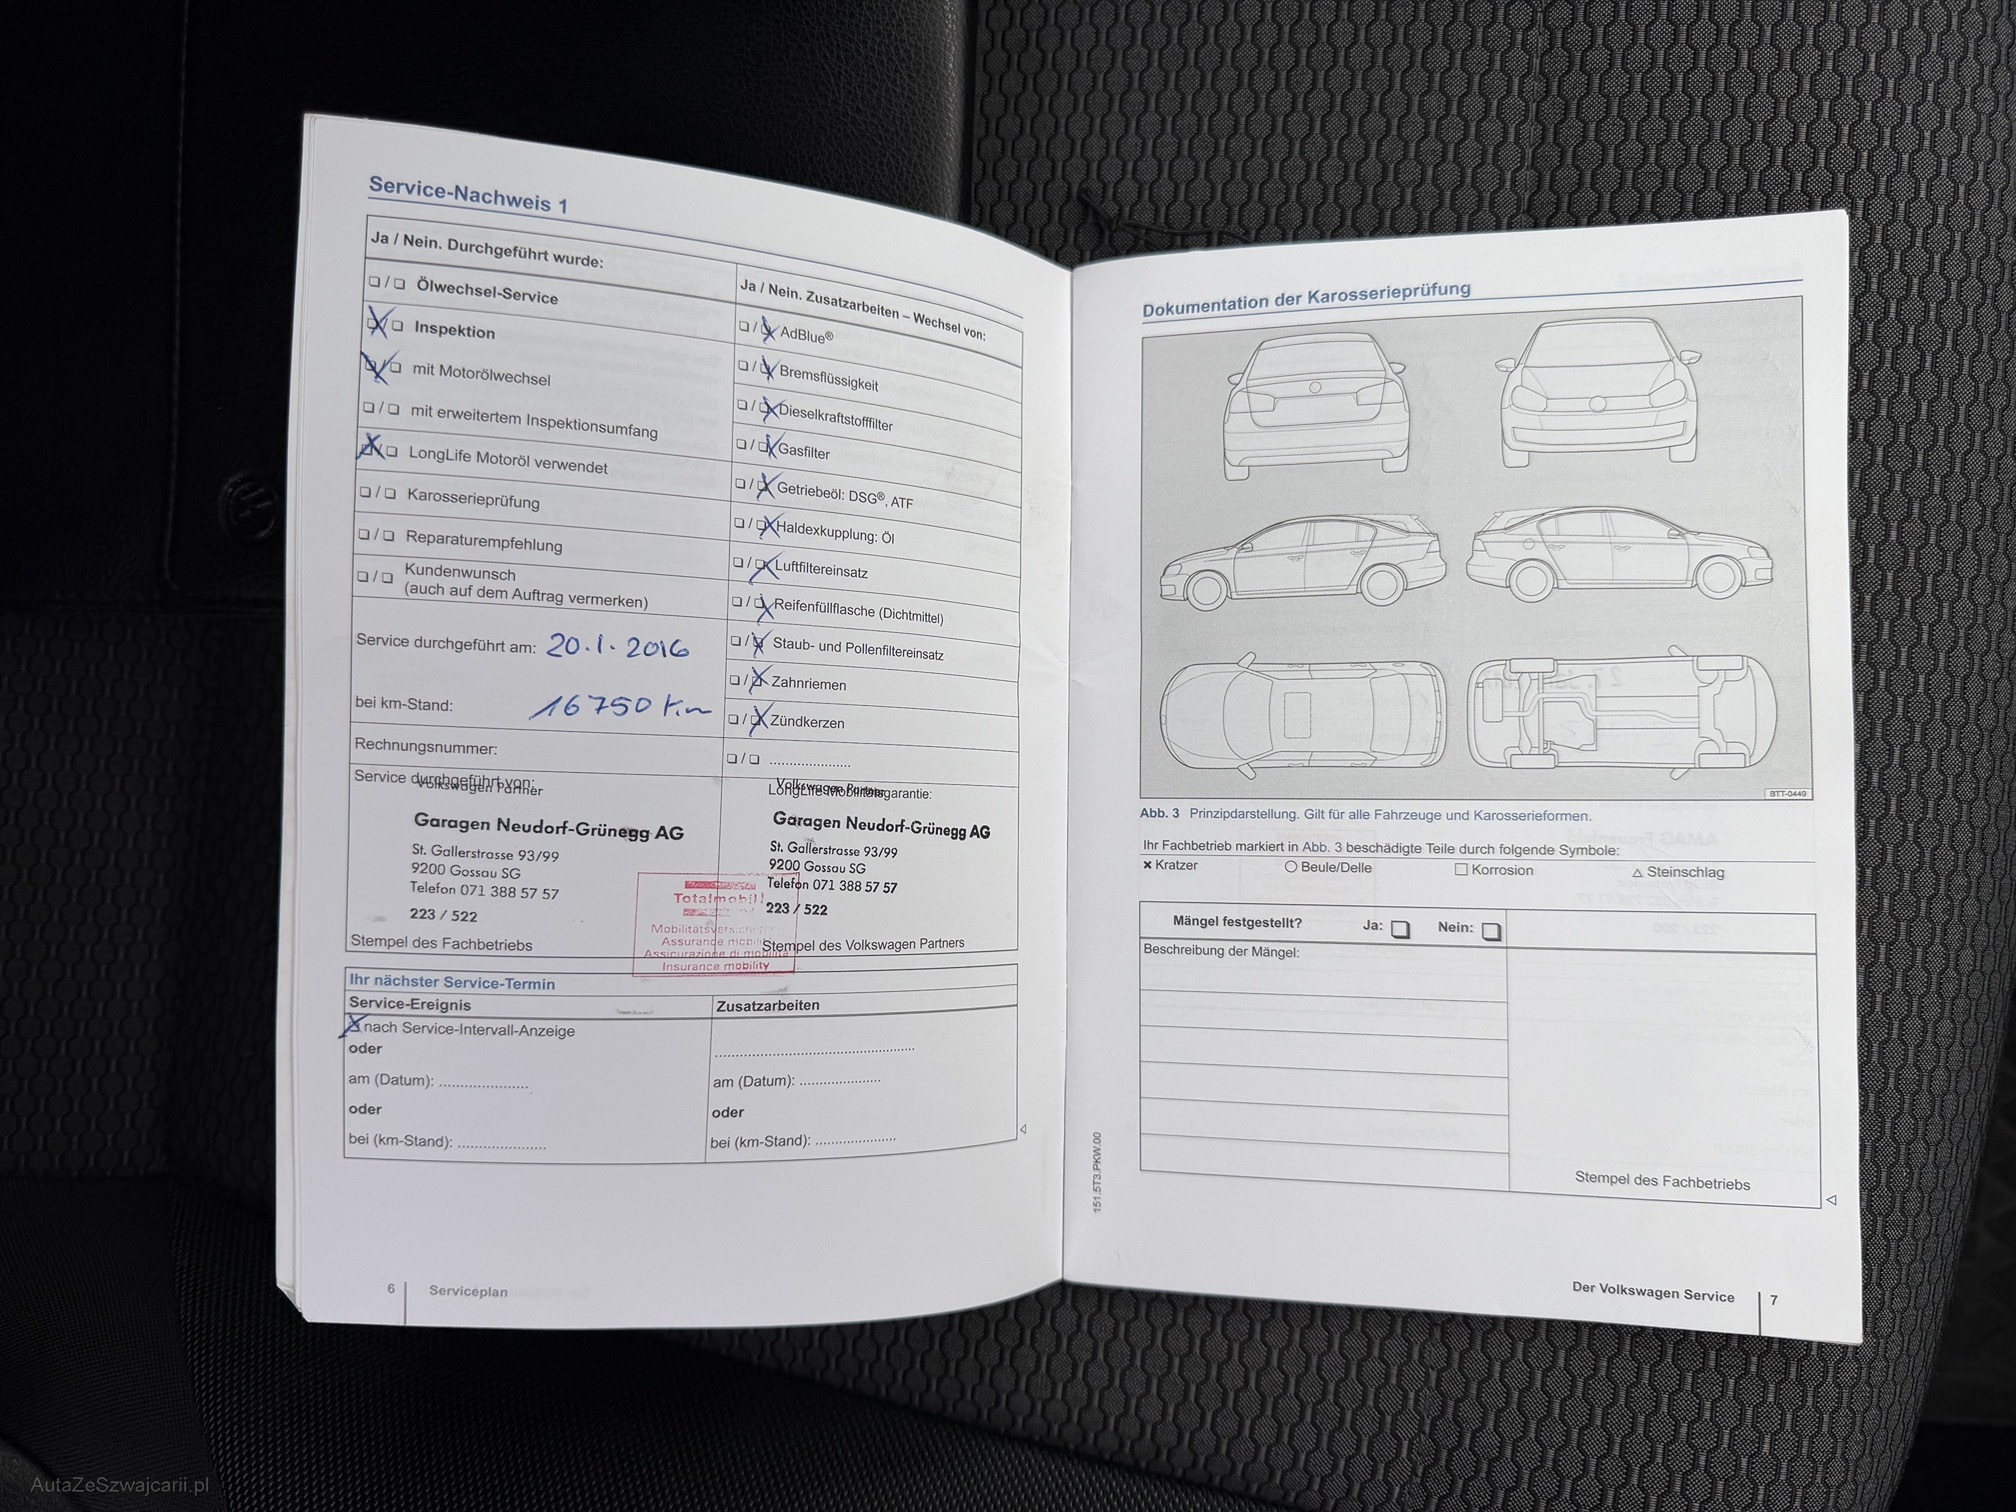 Service-Nachweis 1
Ja / Nein. Durchgeführt wurde:
❑ / ❑ Ölwechsel-Service
❑ Inspektion
❑ mit Motorölwechsel
❑ / ❑ mit erweitertem Inspektionsumfang
❑ LongLife Motoröl verwendet
❑ / ❑ Karosserieprüfung
❑ / ❑ Reparaturempfehlung
❑ / ❑ Kundenwunsch
(auch auf dem Auftrag vermerken)
Service durchgeführt am: 20.1.2016
bei km-Stand: 16750 km
Rechnungsnummer:
Service durchgeführt von:
Volkswagen Partner
Garagen Neudorf-Grünegg AG
St. Gallerstrasse 93/99
9200 Gossau SG
Telefon 071 388 57 57
223 / 522
Stempel des Fachbetriebs
Ja / Nein. Zusatzarbeiten – Wechsel von:
❑ / AdBlue®
❑ / Bremsflüssigkeit
❑ / Dieselkraftstofffilter
❑ / Gasfilter
❑ / Getriebeöl: DSG®, ATF
❑ / Haldexkupplung: Öl
❑ / Luftfiltereinsatz
❑ / Reifenfüllflasche (Dichtmittel)
❑ / Staub- und Pollenfiltereinsatz
❑ / Zahnriemen
❑ / Zündkerzen
❑ / ❑ ....................
Volkswagen Partner
LongLife-Mobilitätsgarantie:
Garagen Neudorf-Grünegg AG
St. Gallerstrasse 93/99
9200 Gossau SG
Telefon 071 388 57 57
223 / 522
Stempel des Volkswagen Partners
Totalmobil!
Assurance mobil
Assicurazione di mobilità
Insurance mobility
Ihr nächster Service-Termin
Service-Ereignis
nach Service-Intervall-Anzeige
oder
am (Datum): ......................
oder
bei (km-Stand): ......................
Zusatzarbeiten
................................................
am (Datum): ....................
oder
bei (km-Stand): ....................
6 Serviceplan
Dokumentation der Karosserieprüfung
BTT-0449
Abb. 3 Prinzipdarstellung. Gilt für alle Fahrzeuge und Karosserieformen.
Ihr Fachbetrieb markiert in Abb. 3 beschädigte Teile durch folgende Symbole:
✖ Kratzer ○ Beule/Delle □ Korrosion △ Steinschlag
Mängel festgestellt? Ja: ❑ Nein: ❑
Beschreibung der Mängel:
Stempel des Fachbetriebs
151.5T3.PKW.00
Der Volkswagen Service 7
AutaZeSzwajcarii.pl